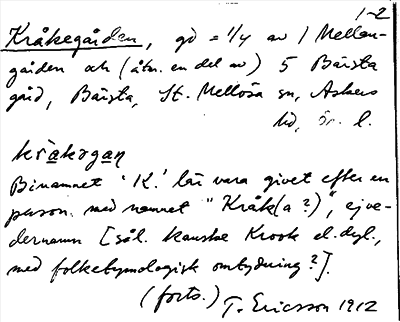 1-2
Kråkegården, gd = 1/4 av 1 Mellan-
gården och (åtm. en del av) 5 Bärsta
gård, Bärsta, St. Mellösa sn, Askers
hd, Ör. l.
kråkɔgan
Binamnet 'K.' lär vara givet efter en
person med namnet "Kråk(a?)", ej ve-
dernamn [sål. kanske Krook el. dyl.,
med folketymologisk omtydning?].
(forts.) T. Ericsson 1912